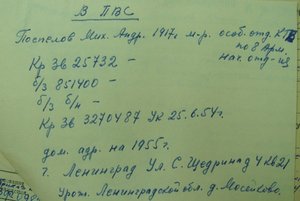 В ПВС
Поспелов Мих. Андр. 1917г м-р. особ. отд. КГБ
по 8 Арм.
нач. отд-ия
Кр Зв 25732 –
б/з 851400 –
б/з б/н –
Кр Зв 3270487 Ук 25.6.54г.
дом. адр. на 1955г.
г. Ленинград Ул. С. Щедрина д 4 кв 21
Урож. Ленинградской обл. д. Мосейково